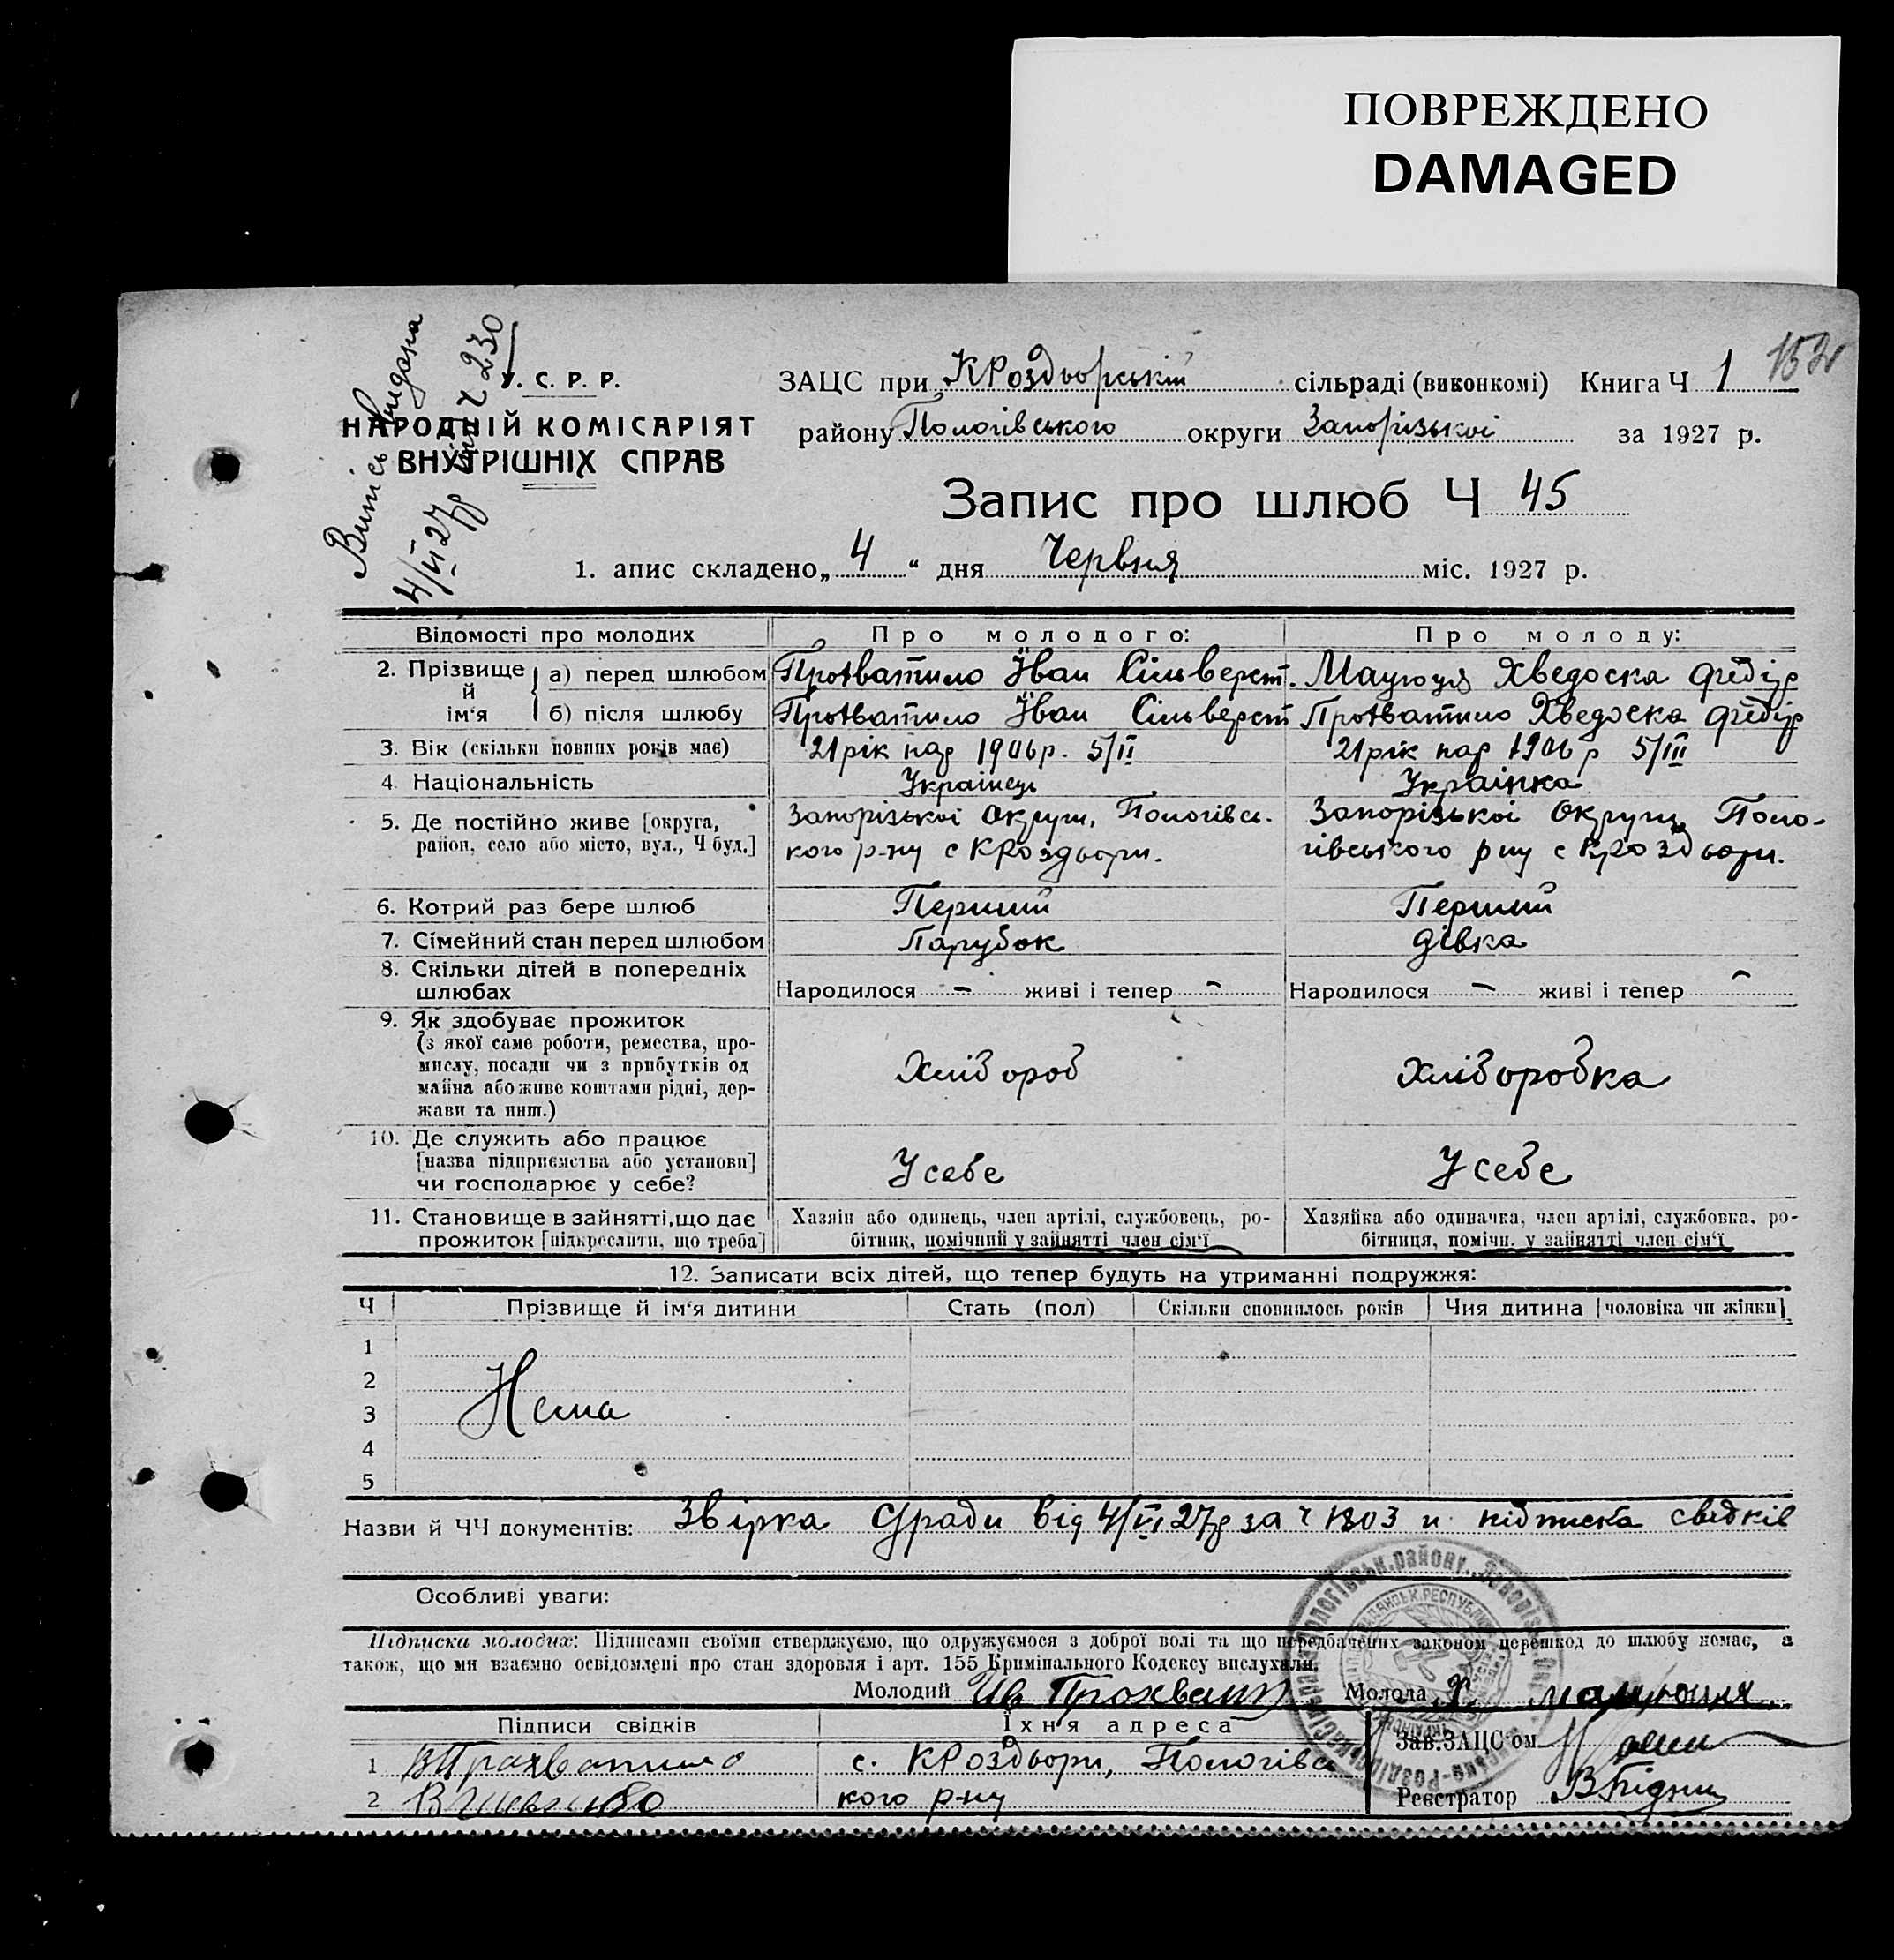 ПОВРЕЖДЕНО
DAMAGED
153
Витісь видана
4/VI 27р ч 230
У. С. Р. Р.
НАРОДНІЙ КОМІСАРІЯТ
ВНУТРІШНІХ СПРАВ
ЗАЦС при КРоздворській сільраді (виконкомі) Книга Ч 1
району Пологівського округи Запорізької за 1927 р.
Запис про шлюб Ч 45
1. апис складено „ 4 “ дня Червня міс. 1927 р.
Відомості про молодих Про молодого: Про молоду:
2. Прізвище й ім‘я а) перед шлюбом Прохватило Іван Сільверст. Мацюця Хведоска Федір
б) після шлюбу Прохватило Іван Сільверст Прохватило Хведоска Федір
3. Вік (скільки повних років має) 21 рік нар 1906 р. 5/II 21 рік нар 1906 р 5/III
4 Національність Українець Українка
5. Де постійно живе [округа, район, село або місто, вул., Ч буд.] Запорізької Округи, Пологівсь- Запорізької Округи, Поло-
кого р-ну с КРоздори. гівського р ну с КРоздори.
6. Котрий раз бере шлюб Перший Перший
7. Сімейний стан перед шлюбом Парубок дівка
8. Скільки дітей в попередніх
шлюбах Народилося – живі і тепер – Народилося – живі і тепер –
9. Як здобуває прожиток
(з якої саме роботи, ремества, про-
мислу, посади чи з прибутків од
майна або живе коштами рідні, дер-
жави та инш.) Хлібороб Хліборобка
10. Де служить або працює
[назва підприємства або установи]
чи господарює у себе? У себе У себе
11. Становище в зайнятті, що дає Хазяїн або одинець, член артілі, службовець, ро- Хазяйка або одиначка, член артілі, службовка, ро-
прожиток [підкреслити, що треба] бітник, помічний у зайнятті член сім‘ї бітниця, помічн. у зайнятті член сім‘ї
12. Записати всіх дітей, що тепер будуть на утриманні подружжя:
Ч Прізвище й ім‘я дитини Стать (пол) Скільки сповнилось років Чия дитина [чоловіка чи жінки]
1
2
3 Нема
4
5
Назви й ЧЧ документів: Звірка С/ради від 4/VI 27р за ч 1303 и підписка свідків
Особливі уваги:
Підписка молодих: Підписами своїми стверджуємо, що одружуємося з доброї волі та що передбачених законом перешкод до шлюбу немає, а
також, що ми взаємно освідомлені про стан здоровля і арт. 155 Кримінального Кодексу вислухали.
Молодий Ив Прохват Молода
Підписи свідків Їхня адреса Зав. ЗАЦС‘ом
1 ВПрохватило с. КРоздори, Пологівсь
2 кого р-ну Реєстратор